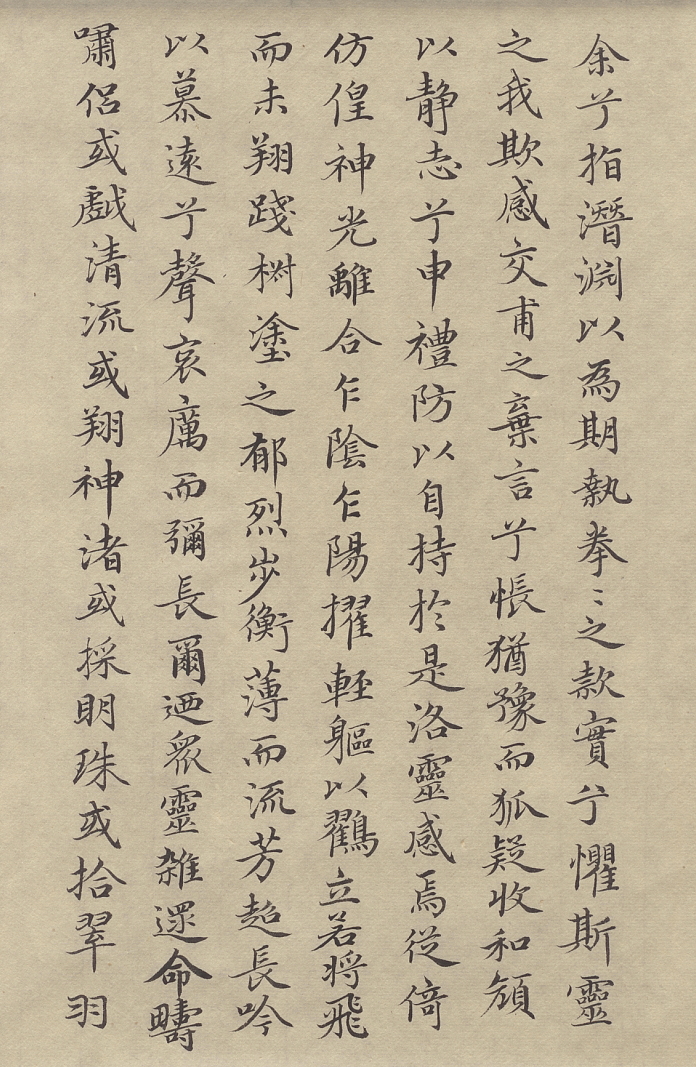 余兮指潛淵以為期執拳〻之款實兮懼斯靈
之我欺感交甫之棄言兮悵猶豫而狐疑收和顏
以靜志兮申禮防以自持於是洛靈感焉從倚
仿偟神光離合乍陰乍陽擢輕軀以鸛立若將飛
而未翔踐椒塗之郁烈步衡薄而流芳超長吟
以慕遠兮聲哀厲而彌長爾迺眾靈雜遝命疇
嘯侶或戲清流或翔神渚或採明珠或拾翠羽